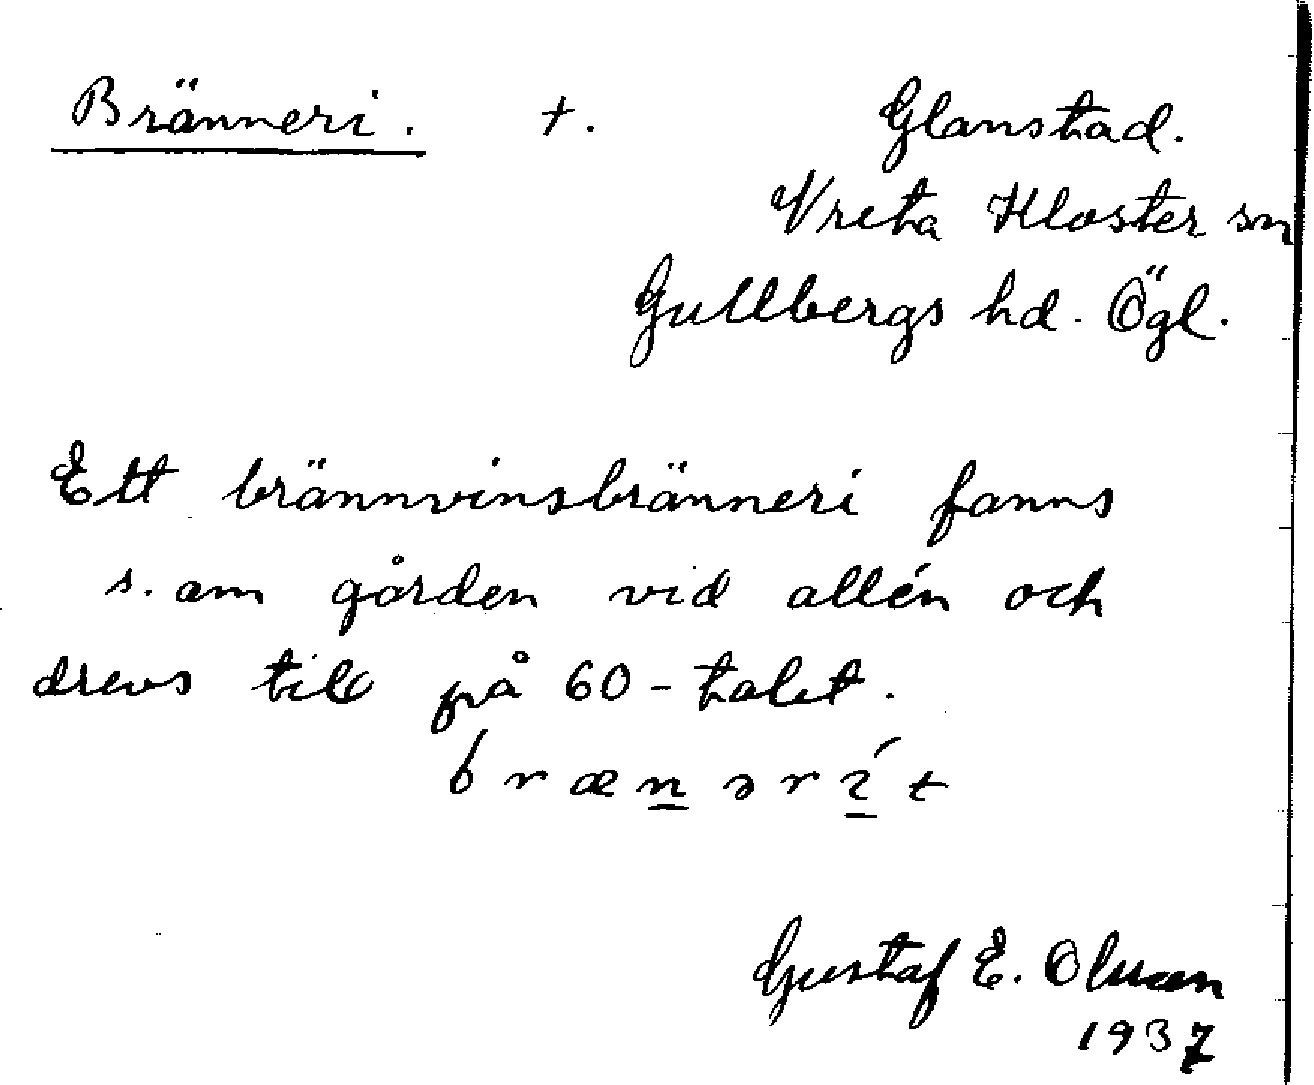 Bränneri. †. Glanstad.
Vreta Kloster sn
Gullbergs hd. Ögl.
Ett brännvinsbränneri fanns
s. om gården vid allén och
drevs till på 60-talet.
brænərít
Gustaf E. Olsson
1937